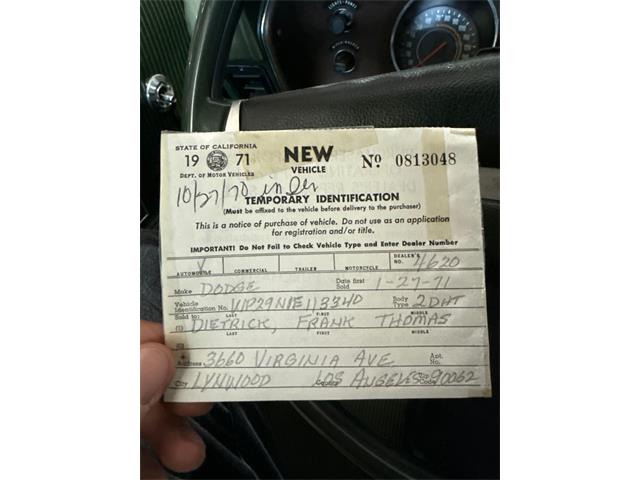 LIGHTS-PANEL
STATE OF CALIFORNIA
19 71
DEPT. OF MOTOR VEHICLES
NEW
VEHICLE
No 0813048
10/27/70
TEMPORARY IDENTIFICATION
(Must be affixed to the vehicle before delivery to the purchaser)
This is a notice of purchase of vehicle. Do not use as an application
for registration and/or title.
IMPORTANT! Do Not Fail to Check Vehicle Type and Enter Dealer Number
AUTOMOBILE COMMERCIAL TRAILER MOTORCYCLE DEALER'S NO. 4620
Make DODGE Date first Sold 1-27-71
Vehicle Identification No. WP29N1E113340 Body Type 2DHT
Sold to: LAST FIRST MIDDLE
(1) DIETRICK, FRANK THOMAS
LAST FIRST MIDDLE
Address 3660 VIRGINIA AVE Apt. No.
City LYNWOOD County LOS ANGELES Zip Code 90062